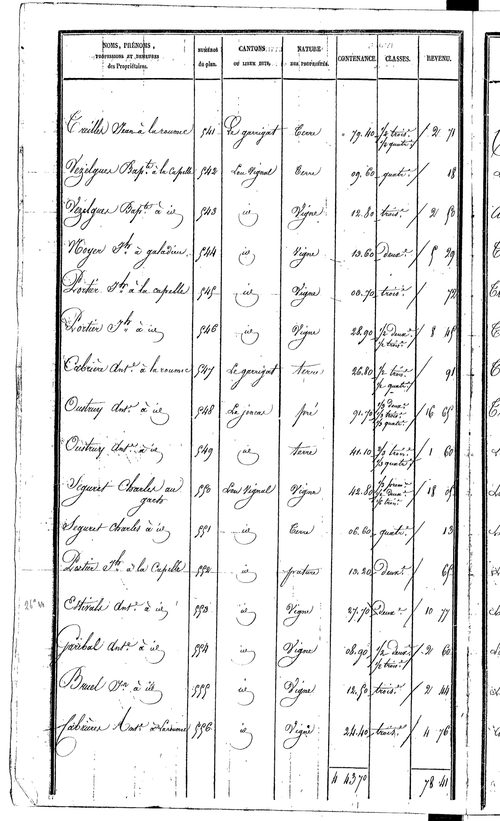 NOMS, PRÉNOMS, PROFESSIONS ET DEMEURES des Propriétaires. NUMÉROS du plan. CANTONS OU LIEUX DITS. NATURE DES PROPRIÉTÉS. CONTENANCE. CLASSES. REVENU.
Treilles Jean à la roume 541 Le garrigat Terre 79.40 1/2 trois. 1/2 quatr. 2 71
Vezelgues Bapt. à la Capelle 542 Lou Vignal Terre 09.60 quatr. 18
Vezelgues Bapt. à id 543 id Vigne 12.80 trois. 2 50
Noyer Jh. à galadieu 544 id Vigne 13.60 Deux. 5 29
Portier Jh. à la capelle 545 id Vigne 00.70 trois. 72
Portier Jh. à id 546 id Vigne 28.90 1/2 deux. 1/2 trois. 8 45
Cabrière Ant. à la roume 547 Le garrigat terre 26.80 1/2 trois. 1/2 quatr. 91
Oustruy Ant. à id 548 La joncas pré 91.70 1/3 deux. 1/3 trois. 1/3 quatr. 16 65
Oustruy Ant. à id 549 id terre 41.10 1/2 trois. 1/2 quatr. 1 60
Seguret Charles au 550 Lou Vignal Vigne 42.80 1/2 deux. 18 05
Seguret Charles à id 551 id Terre 06.60 quatr. 13
Portier Jh. à la Capelle 552 id pature 13.20 deux. 65
Estivals Ant. à id 553 id Vigne 27.70 deux. 10 77
garibal Ant. à id 554 id Vigne 08.90 1/2 deux. 1/2 trois. 2 60
Bruel à id 555 id Vigne 12.50 trois. 2 44
Cabrières Ant. à Laroume 556 id Vigne 24.40 trois. 4 76
4 43 70 78 41